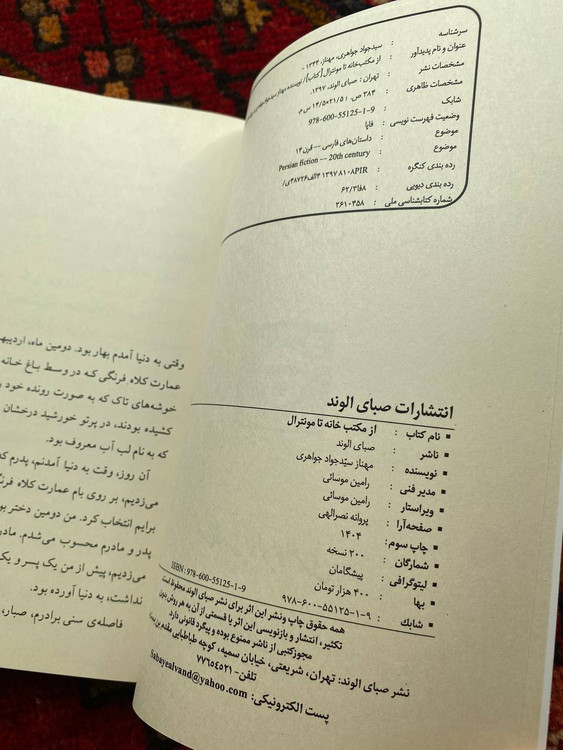 سرشناسه : سیدجواد جواهری، مهناز، ۱۳۳۴ -
عنوان و نام پدیدآور : از مکتب‌خانه تا مونترال [کتاب] / نویسنده مهناز سیدجواد
مشخصات نشر : تهران: صبای الوند، ۱۳۹۷.
مشخصات ظاهری : ۳۸۴ ص. ؛ ۱۴/۵×۲۱/۵ س م.
شابک : 978-600-55125-1-9
وضعیت فهرست نویسی : فاپا
موضوع : داستان‌های فارسی -- قرن ۱۴
موضوع : Persian fiction -- 20th century
رده بندی کنگره : PIR۸۱۰۸ ۱۳۹۷ ۴الف۴۸۷۲۶ی/
رده بندی دیویی : ۸فا۳/۶۲
شماره کتابشناسی ملی : ۲۶۱۰۴۵۸
انتشارات صبای الوند
نام کتاب : از مکتب خانه تا مونترال
ناشر : صبای الوند
نویسنده : مهناز سیّدجواد جواهری
مدیر فنی : رامین موسائی
ویراستار : رامین موسائی
صفحه‌آرا : پروانه نصرالهی
چاپ سوم : ۱۴۰۴
شمارگان : ۲۰۰ نسخه
لیتوگرافی : پیشگامان
بها : ۴۰۰ هزار تومان
شابک : ۹-۱-۵۵۱۲۵-۶۰۰-۹۷۸
ISBN: 978-600-55125-1-9
همه حقوق چاپ ونشر این اثر برای نشر صبای الوند محفوظ است
تکثیر، انتشار و بازنویسی این اثر یا قسمتی از آن به هر روش بدون
مجوزکتبی از ناشر ممنوع بوده و پیگرد قانونی دارد.
نشر صبای الوند: تهران، شریعتی، خیابان سمیه، کوچه طباطبایی مقدم
تلفن- ۷۷۶۵۴۵۲۱
پست الکترونیکی: Sabayealvand@yahoo.com
وقتی به دنیا آمدم بهار بود. دومین ماه،
عمارت کلاه فرنگی که در وسط باغ خانه
خوشه‌های تاک که به صورت رونده خود
کشیده بودند، در پرتو خورشید درخشان
که به نام لب آب معروف بود.
آن روز، وقت به دنیا آمدنم، پدرم که
می‌زدیم، بر روی بام عمارت کلاه
برایم انتخاب کرد. من دومین دختر
پدر و مادرم محسوب می‌شدم.
می‌زدیم، پیش از من یک پسر و یک
نداشت، به دنیا آورده بود.
فاصله‌ی سنی برادرم، صبار،